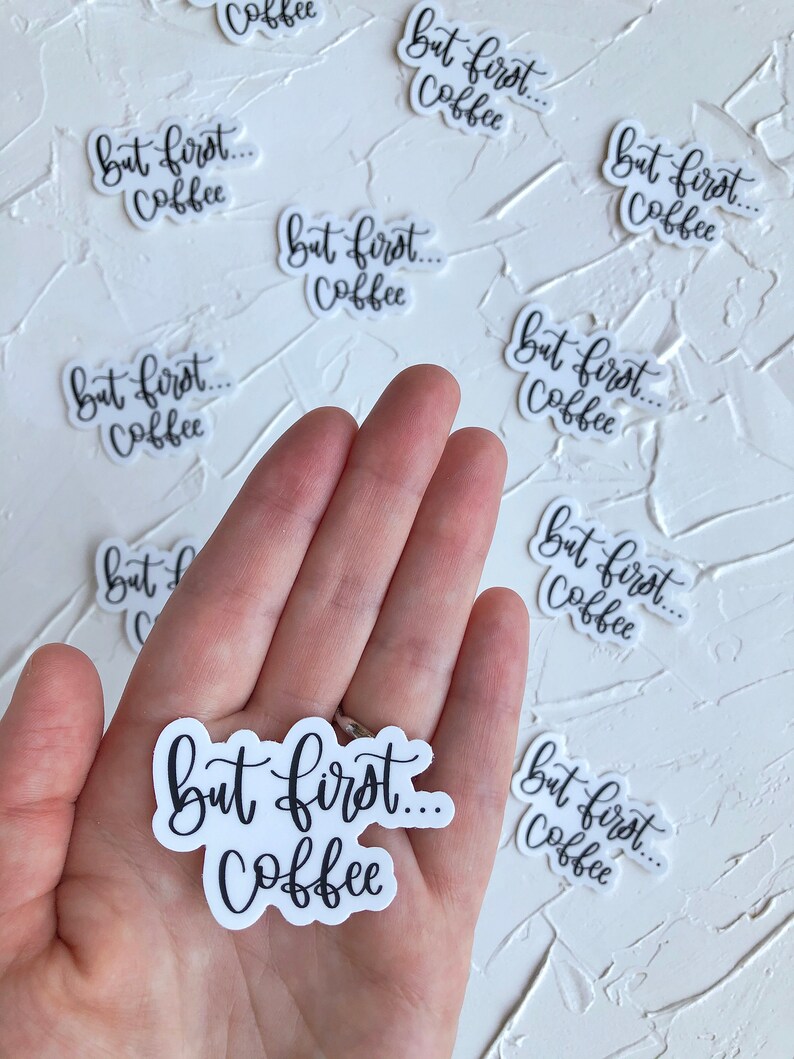 coffee
but first...
coffee
but first...
coffee
but first...
coffee
but first...
coffee
but first...
coffee
but first...
coffee
but first...
coffee
but
but first...
coffee
but first...
coffee